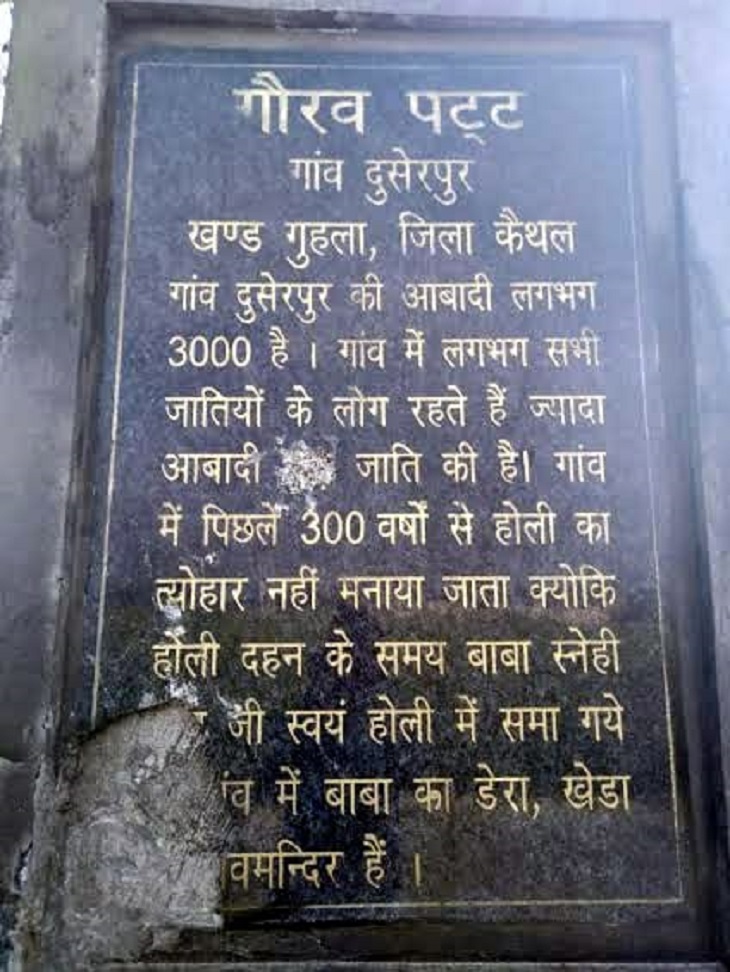 गौरव पट्ट
गांव दुसेरपुर
खण्ड गुहला, जिला कैथल
गांव दुसेरपुर की आबादी लगभग
3000 है । गांव में लगभग सभी
जातियों के लोग रहते हैं ज्यादा
आबादी जाति की है। गांव
में पिछले 300 वर्षों से होली का
त्योहार नहीं मनाया जाता क्योकि
होली दहन के समय बाबा स्नेही
जी स्वयं होली में समा गये
में बाबा का डेरा, खेडा
हैं ।